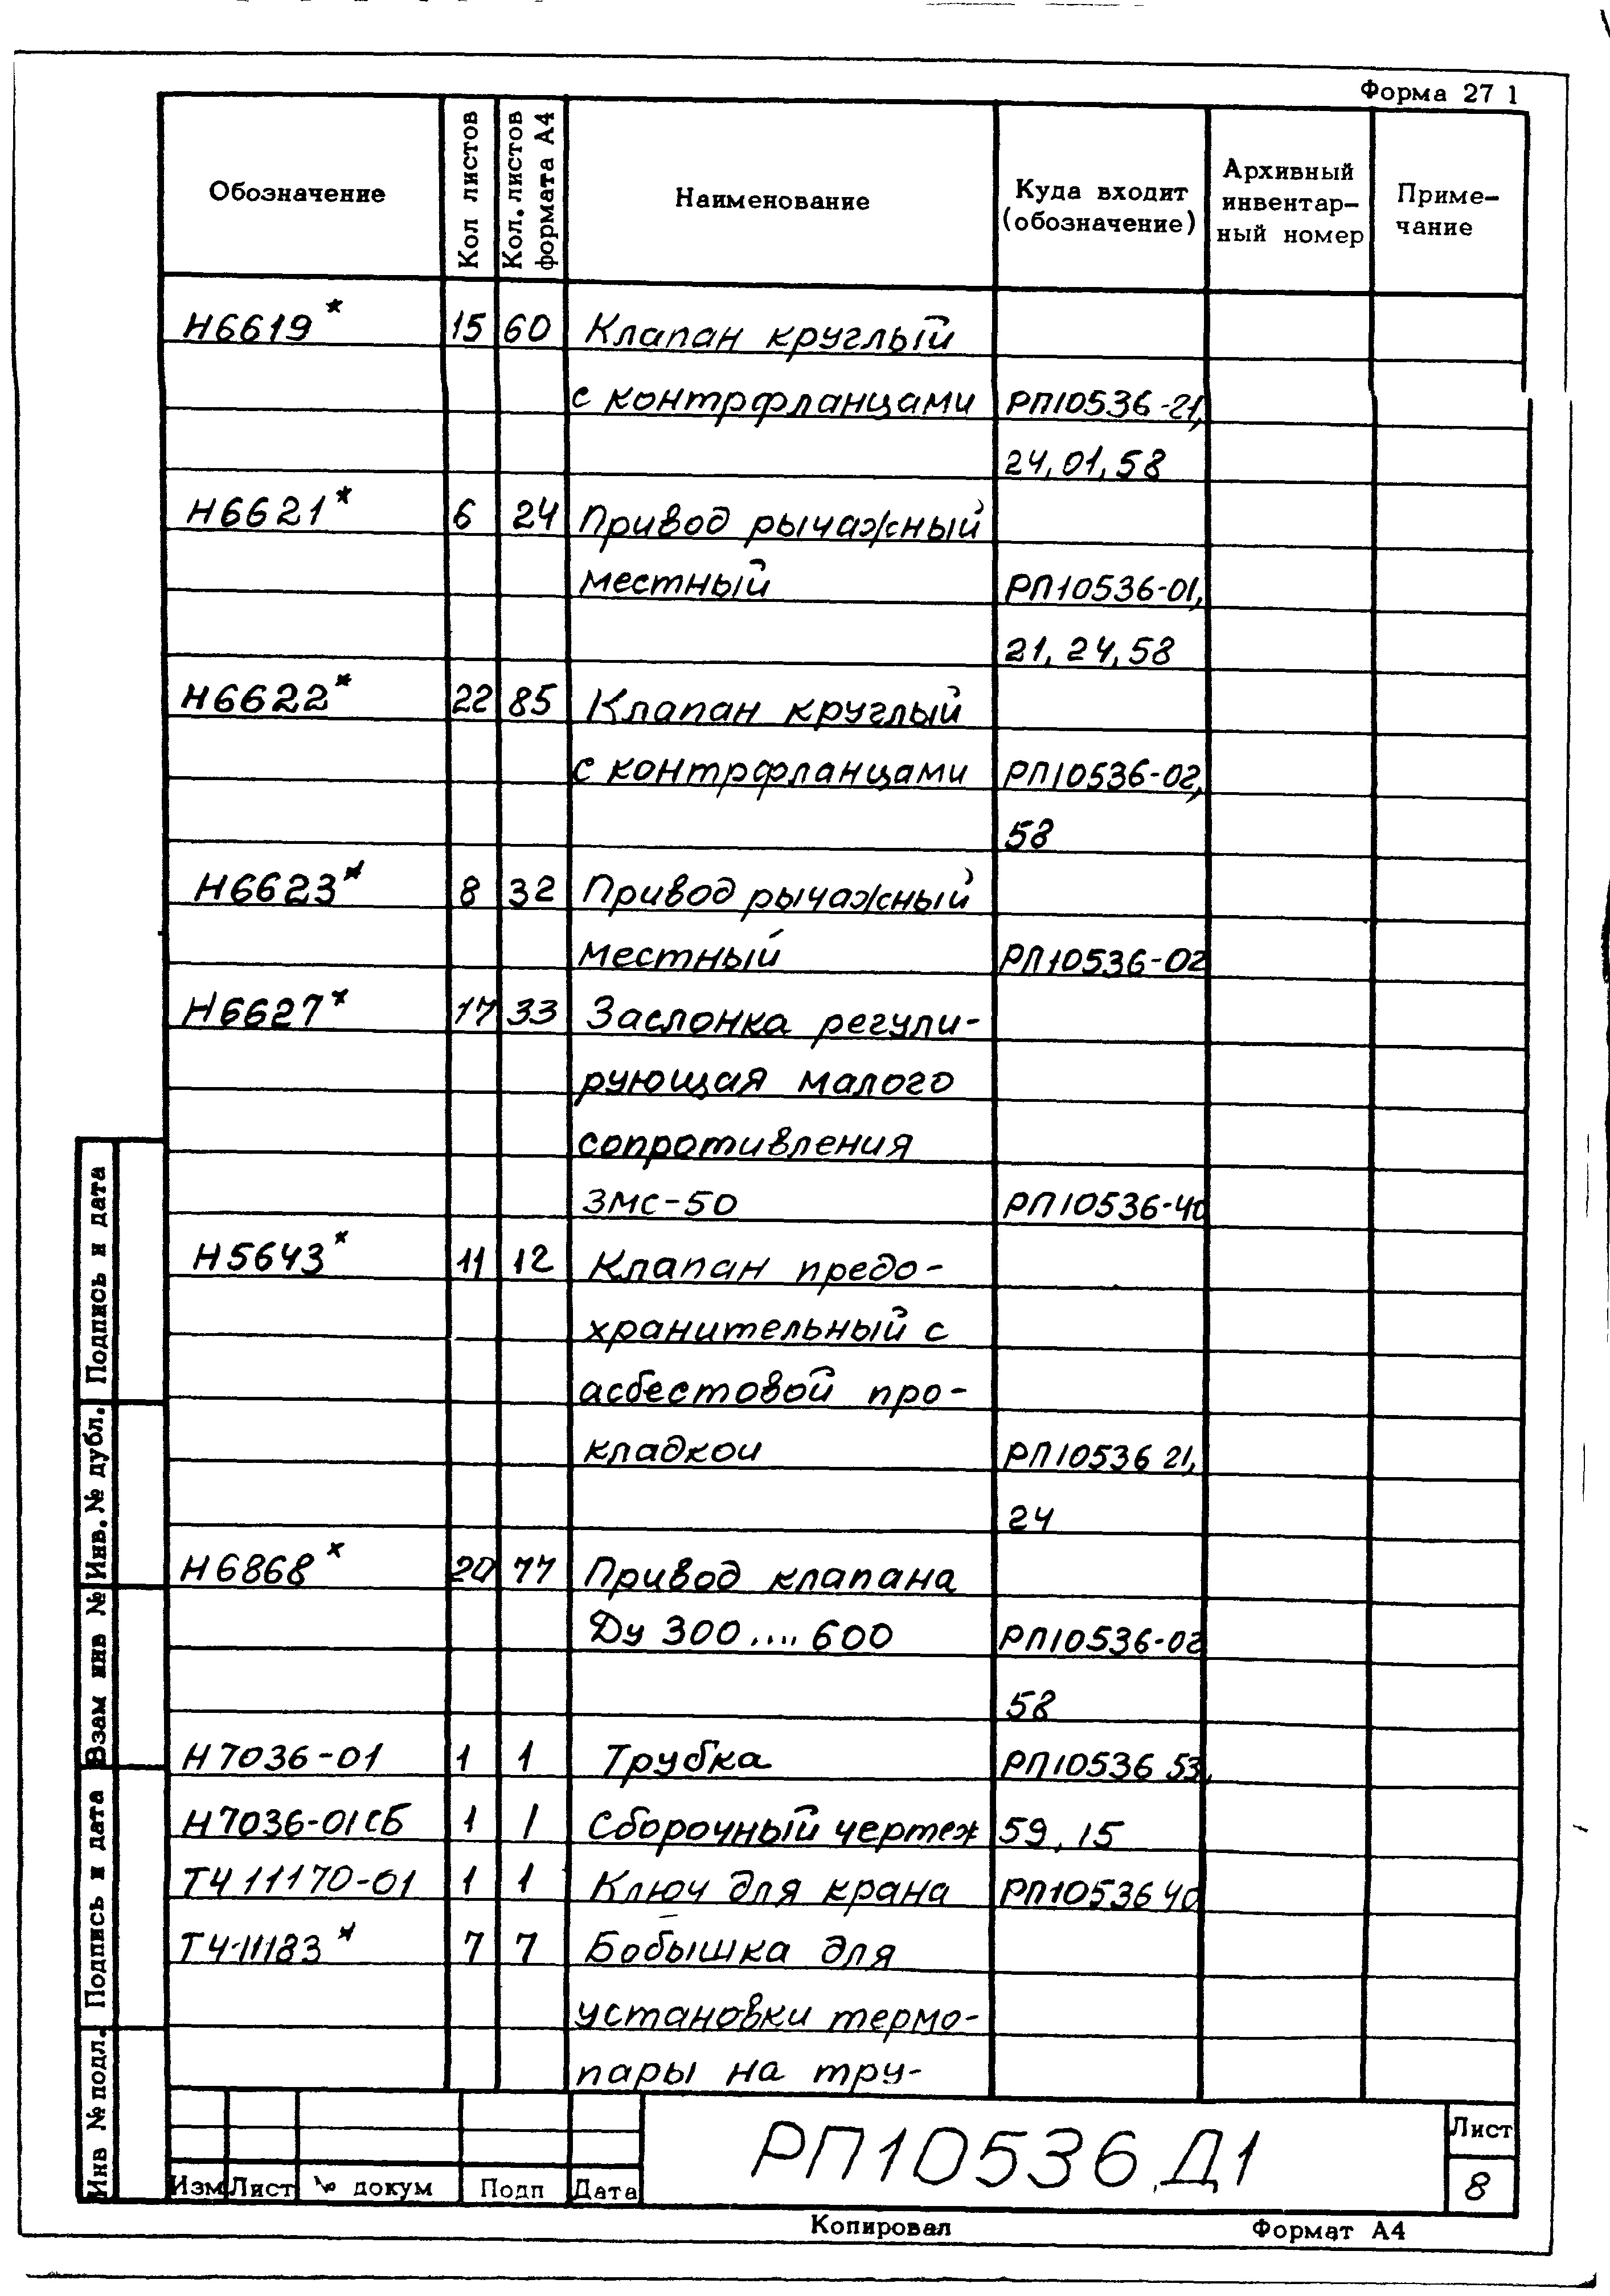 Форма 27 1
Обозначение
Кол листов
Кол. листов формата А4
Наименование
Куда входит (обозначение)
Архивный инвентар-ный номер
Приме-чание
Н6619* 15 60 Клапан круглый
с контрфланцами РП10536-21,
24,01,58
Н6621* 6 24 Привод рычажный
местный РП10536-01,
21,24,58
Н6622* 22 85 Клапан круглый
с контрфланцами РП10536-02,
58
Н6623* 8 32 Привод рычажный
местный РП10536-02
Н6627* 17 33 Заслонка регули-
рующая малого
сопротивления
ЗМС-50 РП10536-40
Н5643* 11 12 Клапан предо-
хранительный с
асбестовой про-
кладкои РП10536 21,
24
Н6868* 20 77 Привод клапана
Ду 300.... 600 РП10536-02
58
Н7036-01 1 1 Трубка РП10536 53,
Н7036-01СБ 1 1 Сборочный чертеж 59,15
ТЧ11170-01 1 1 Ключ для крана РП10536 40
ТЧ-11183* 7 7 Бобышка для
установки термо-
пары на тру-
Подпись и дата
Инв. № дубл.
Взам инв №
Подпись и дата
Инв № подл.
Изм Лист № докум Подп Дата
РП10536 Д1
Лист
8
Копировал Формат А4